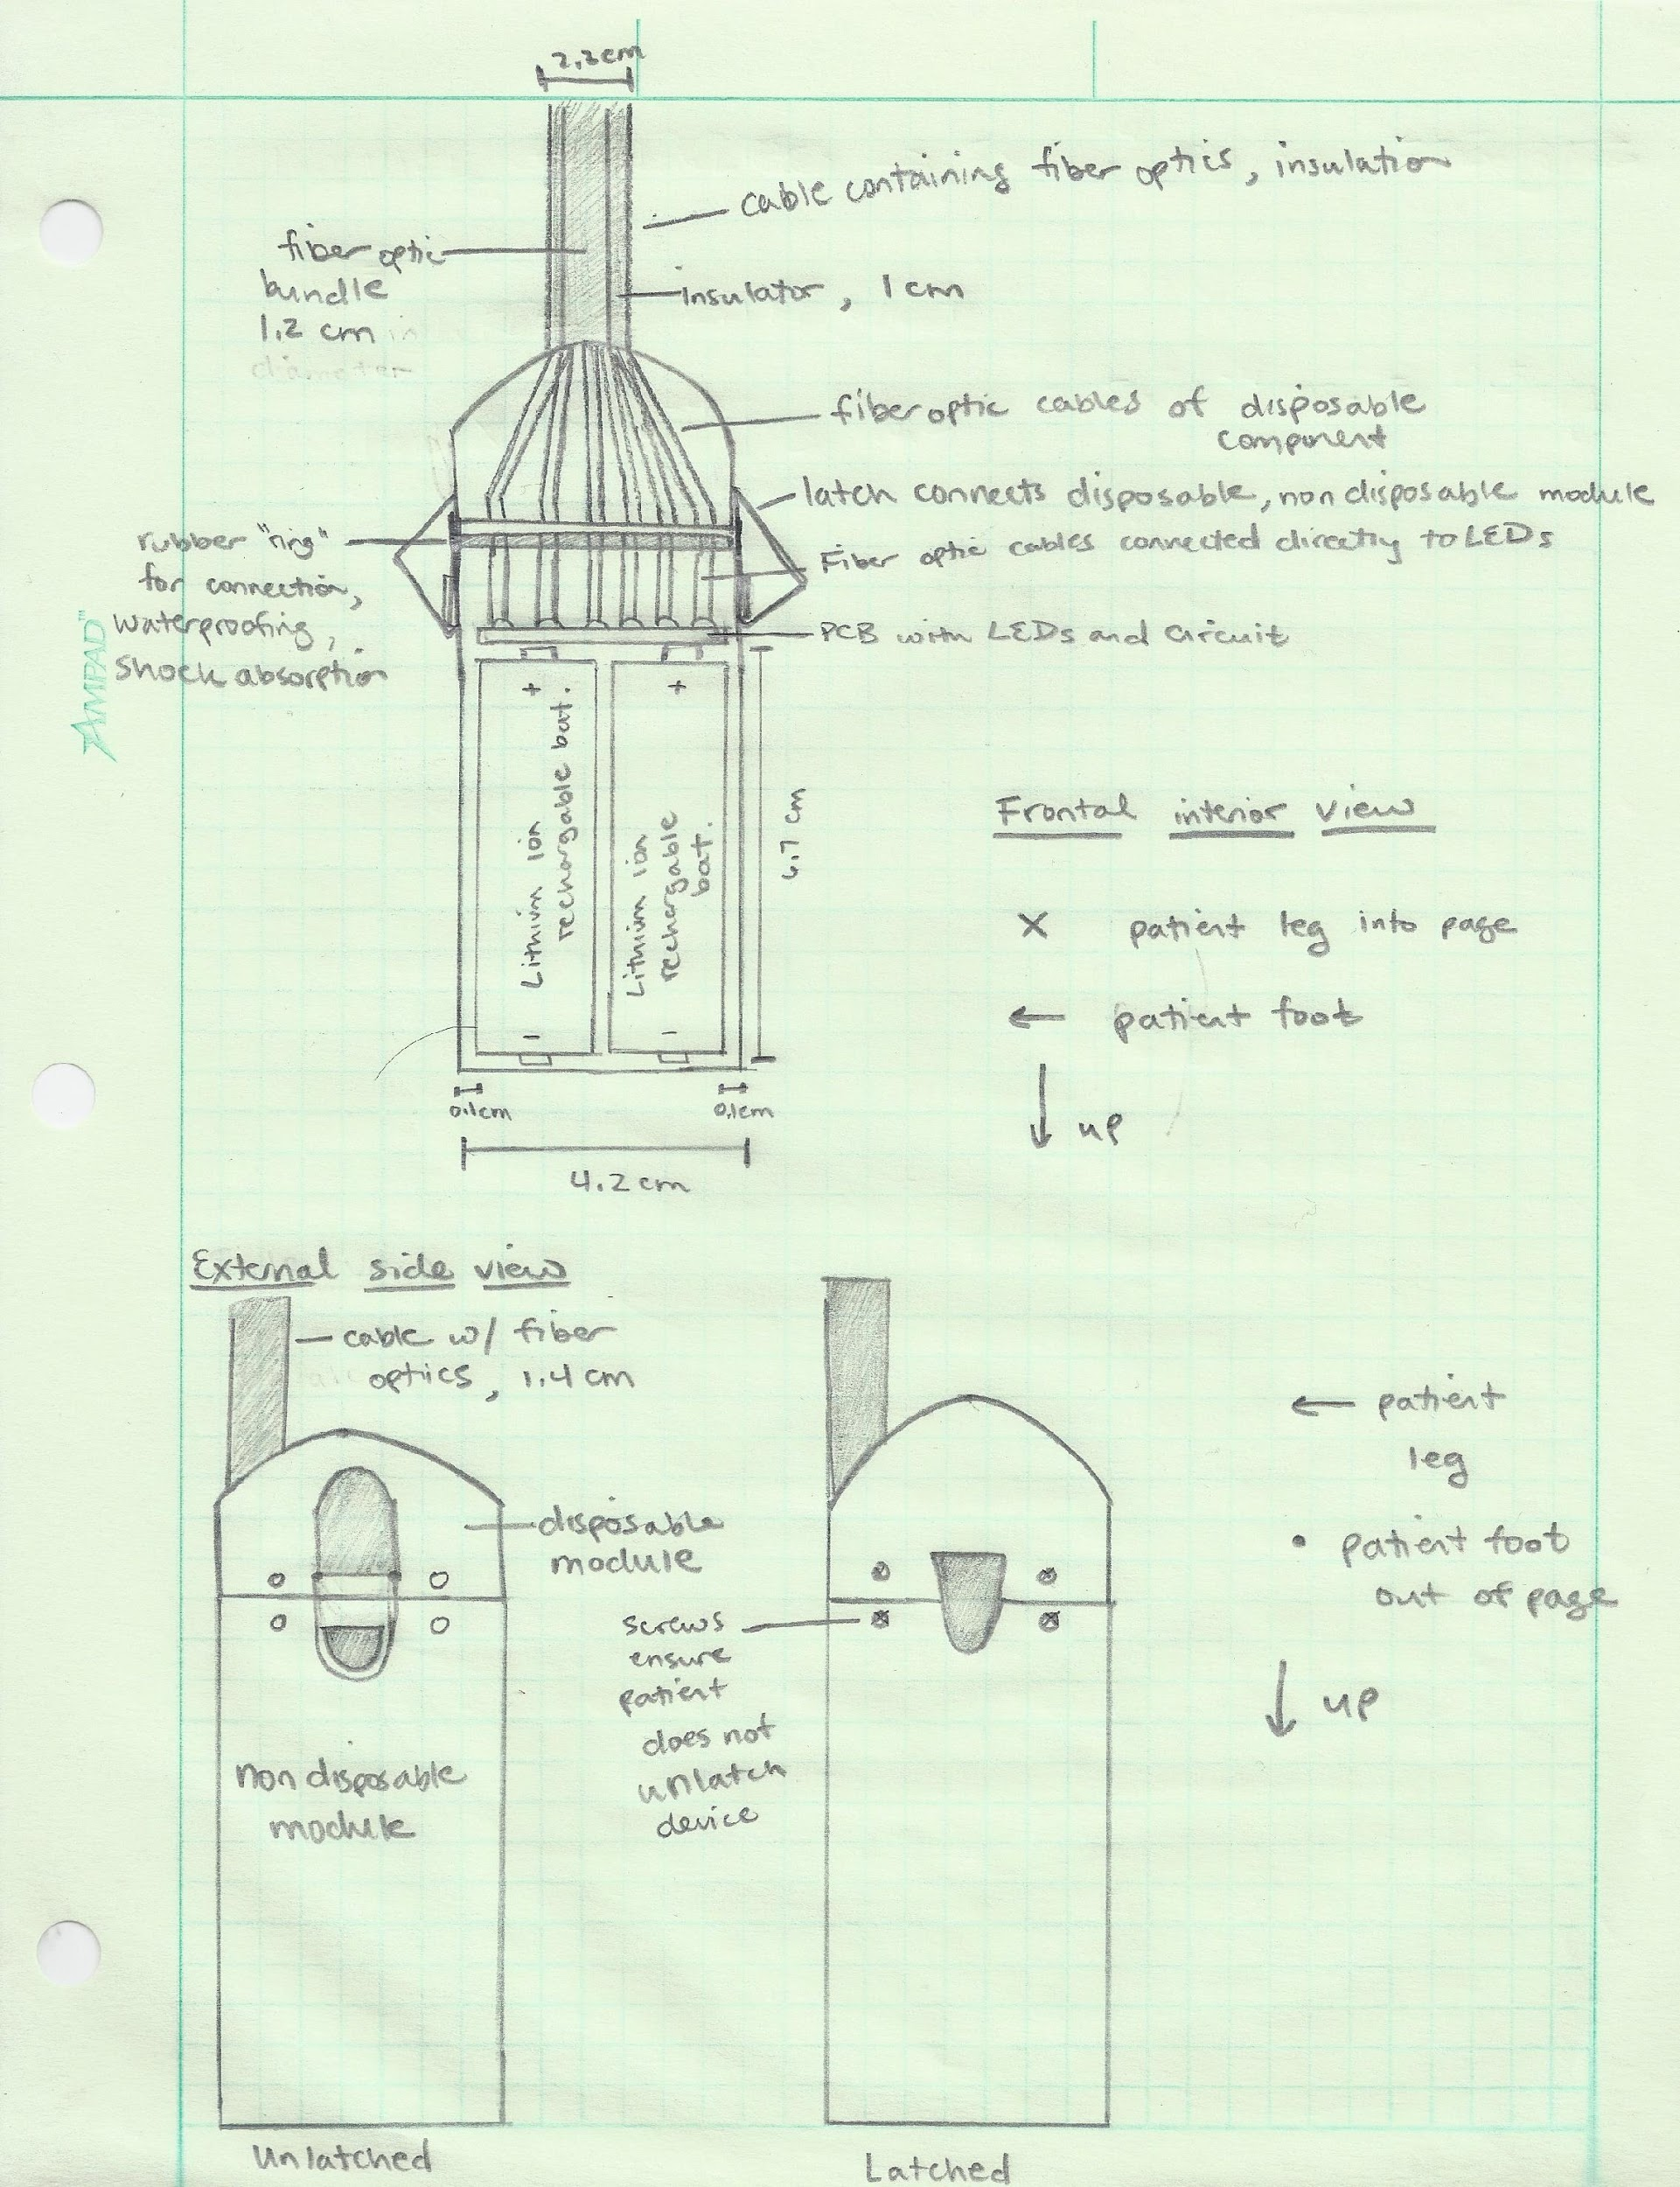 2.2cm
cable containing fiber optics, insulation
fiber optic
bundle
1.2 cm in
diameter
insulator, 1 cm
fiber optic cables of disposable
component
latch connects disposable, non disposable module
rubber "ring"
for connection,
waterproofing,
shock absorption
Fiber optic cables connected directly to LEDs
PCB with LEDs and circuit
AMPAD
+
+
Lithium ion
rechargable bat.
Lithium ion
rechargable
bat.
-
-
6.7 cm
Frontal interior view
X patient leg into page
← patient foot
↓ up
0.1cm
0.1cm
4.2 cm
External side view
cable w/ fiber
optics, 1.4 cm
disposable
module
non disposable
module
Unlatched
screws
ensure
patient
does not
unlatch
device
Latched
← patient
leg
• patient foot
out of page
↓ up